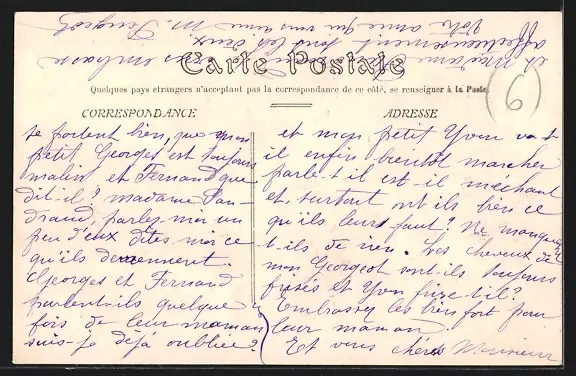 Carte Postale
Quelques pays étrangers n'acceptant pas la correspondance de ce côté, se renseigner à la Poste.
CORRESPONDANCE
se portent bien, que mon
petit Georges est toujours
malin et Fernand que
dit-il? madame Pan-
draud, parlez-moi un
peu d'eux dites moi ce
qu'ils deviennent.
Georges et Fernand
parlent-ils quelque
fois de leur maman
suis-je déjà oubliée?
ADRESSE
et mon petit Yvon va t
il enfin bientôt marcher
parle-t-il est-il méchant
et surtout ont ils bien ce
qu'ils leurs faut? Ne manquent
t-ils de rien. Les cheveux de
mon Georgeot sont-ils toujours
frisés et Yvon frise-t-il?
Embrassez les bien fort pour
leur maman
Et vous chers Monsieur
et madame vous embrasse
affectueusement tous les deux
Votre amie qui vous aime M.
6